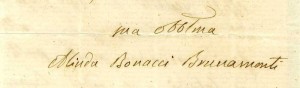 ma obb̃ma
Alinda Bonacci Brunamonti